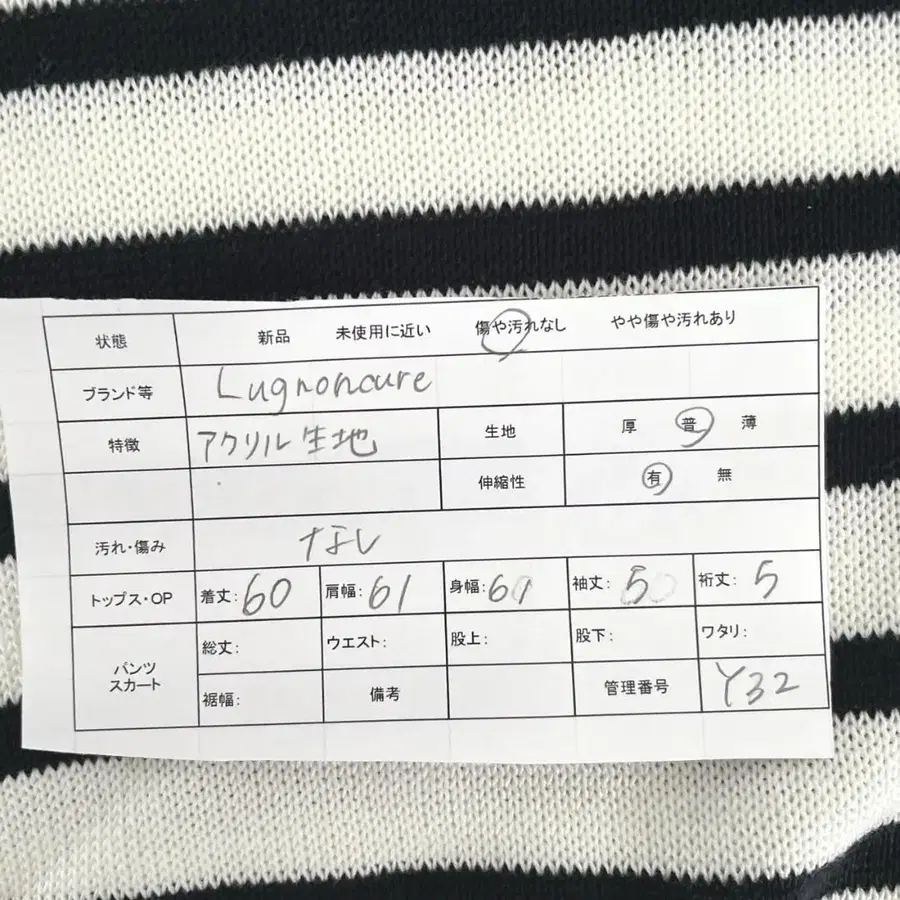 状態 新品 未使用に近い 傷や汚れなし やや傷や汚れあり
ブランド等 Lugnoncure
特徴 アクリル生地 生地 厚 普 薄
伸縮性 有 無
汚れ・傷み なし
トップス・OP 着丈: 60 肩幅: 61 身幅: 裄丈: 5 袖丈: 5
パンツ スカート 総丈: ウエスト: 股上: 股下: ワタリ:
裾幅: 備考 管理番号 Y32